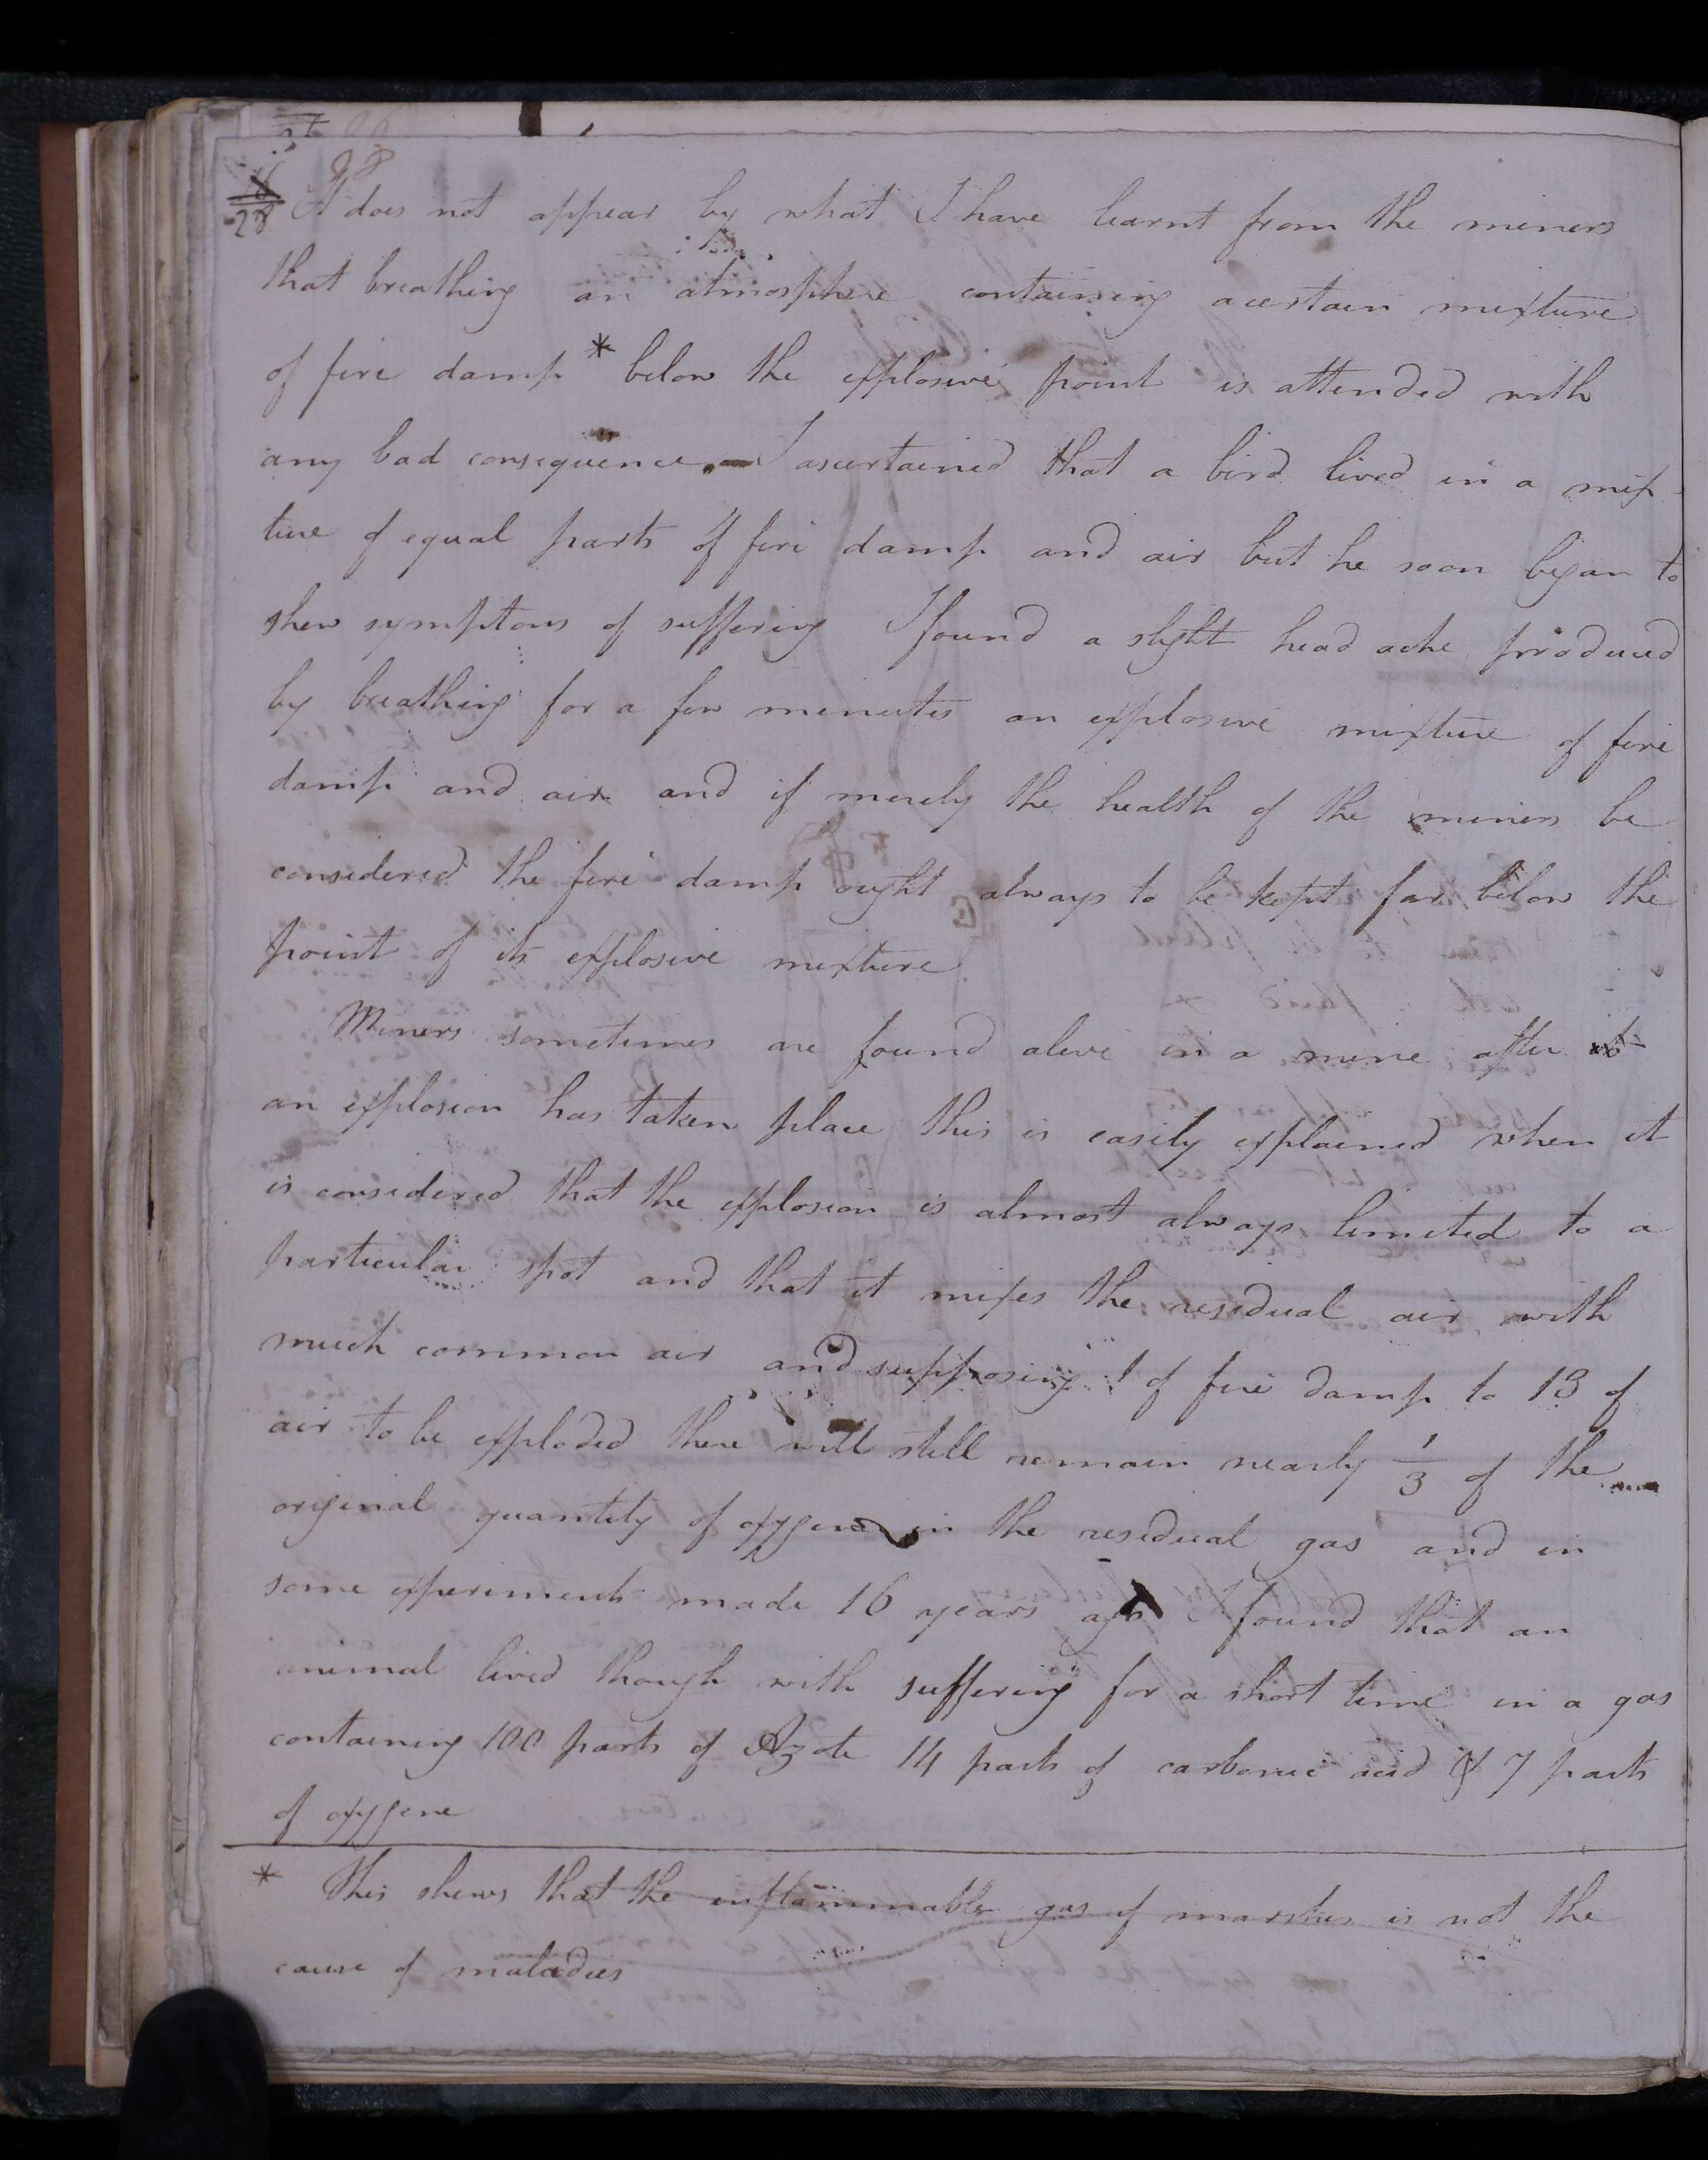 28
28 It does not appear by what I have learnt from the miners
that breathing an atmosphere containing a certain mixture
of fire damp * below the explosive point is attended with
any bad consequence. — I ascertained that a bird lived in a mix-
ture of equal parts of fire damp and air but he soon began to
shew symptons of suffering I found a slight head ache produced
by breathing for a few minutes an explosive mixture of fire
damp and air and if merely the health of the miners be
considered the fire damp ought always to be kept far below the
point of its explosive mixture
Miners sometimes are found alive in a mine after
an explosion has taken place this is easily explained when it
is considered that the explosion is almost always limited to a
particular spot and that it mixes the residual air with
much common air and supposing 1 of fire damp to 13 of
air to be exploded there will still remain nearly 1/3 of the
original quantity of oxygene in the residual gas and in
some experiments made 16 years ago I found that an
animal lived though with suffering for a short time in a gas
containing 100 parts of Azote 14 parts of carbonic acid & 7 parts
of oxygene
* This shews that the inflammable gas of marshes is not the
cause of maladies